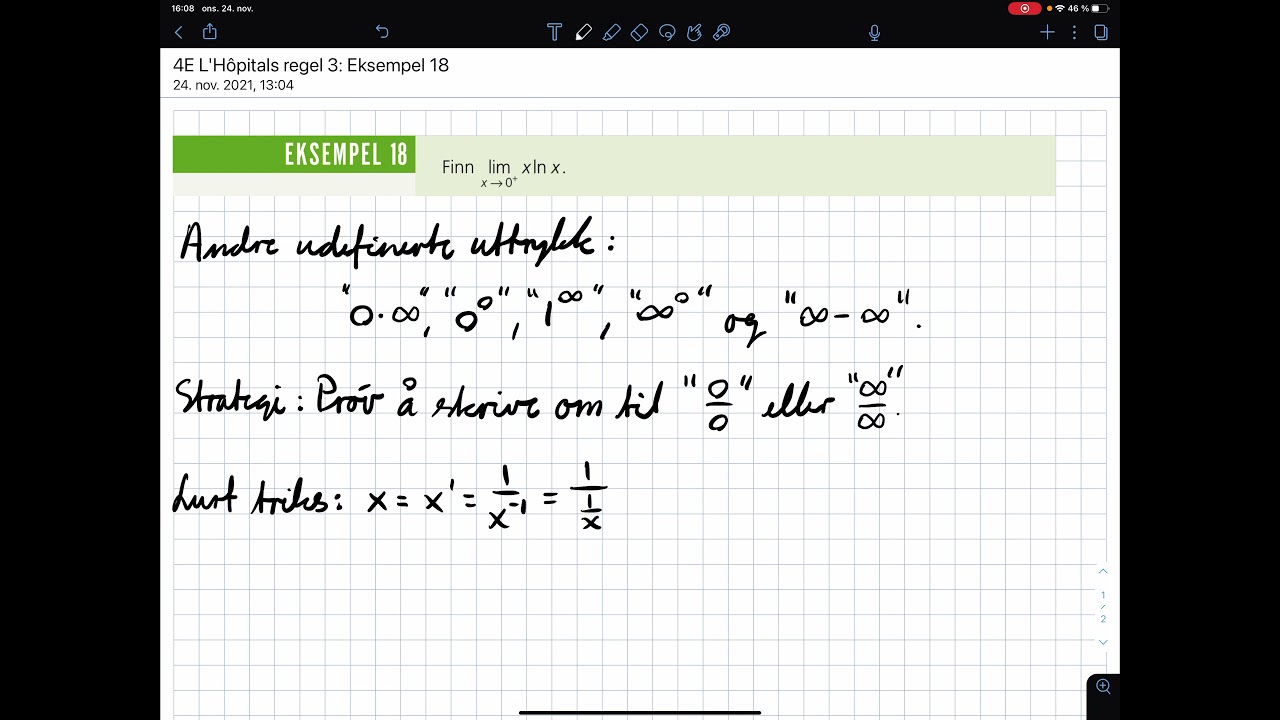 16:08 ons. 24. nov. 46 %
4E L'Hôpitals regel 3: Eksempel 18
24. nov. 2021, 13:04
EKSEMPEL 18 Finn lim x→0⁺ x ln x.
Andre udefinerte uttrykk:
"0·∞", "0⁰", "1^∞", "∞⁰" og "∞-∞".
Strategi: Prøv å skrive om til "0/0" eller "∞/∞".
Lurt triks: x = x¹ = 1/x⁻¹ = 1/(1/x)
1
/
2